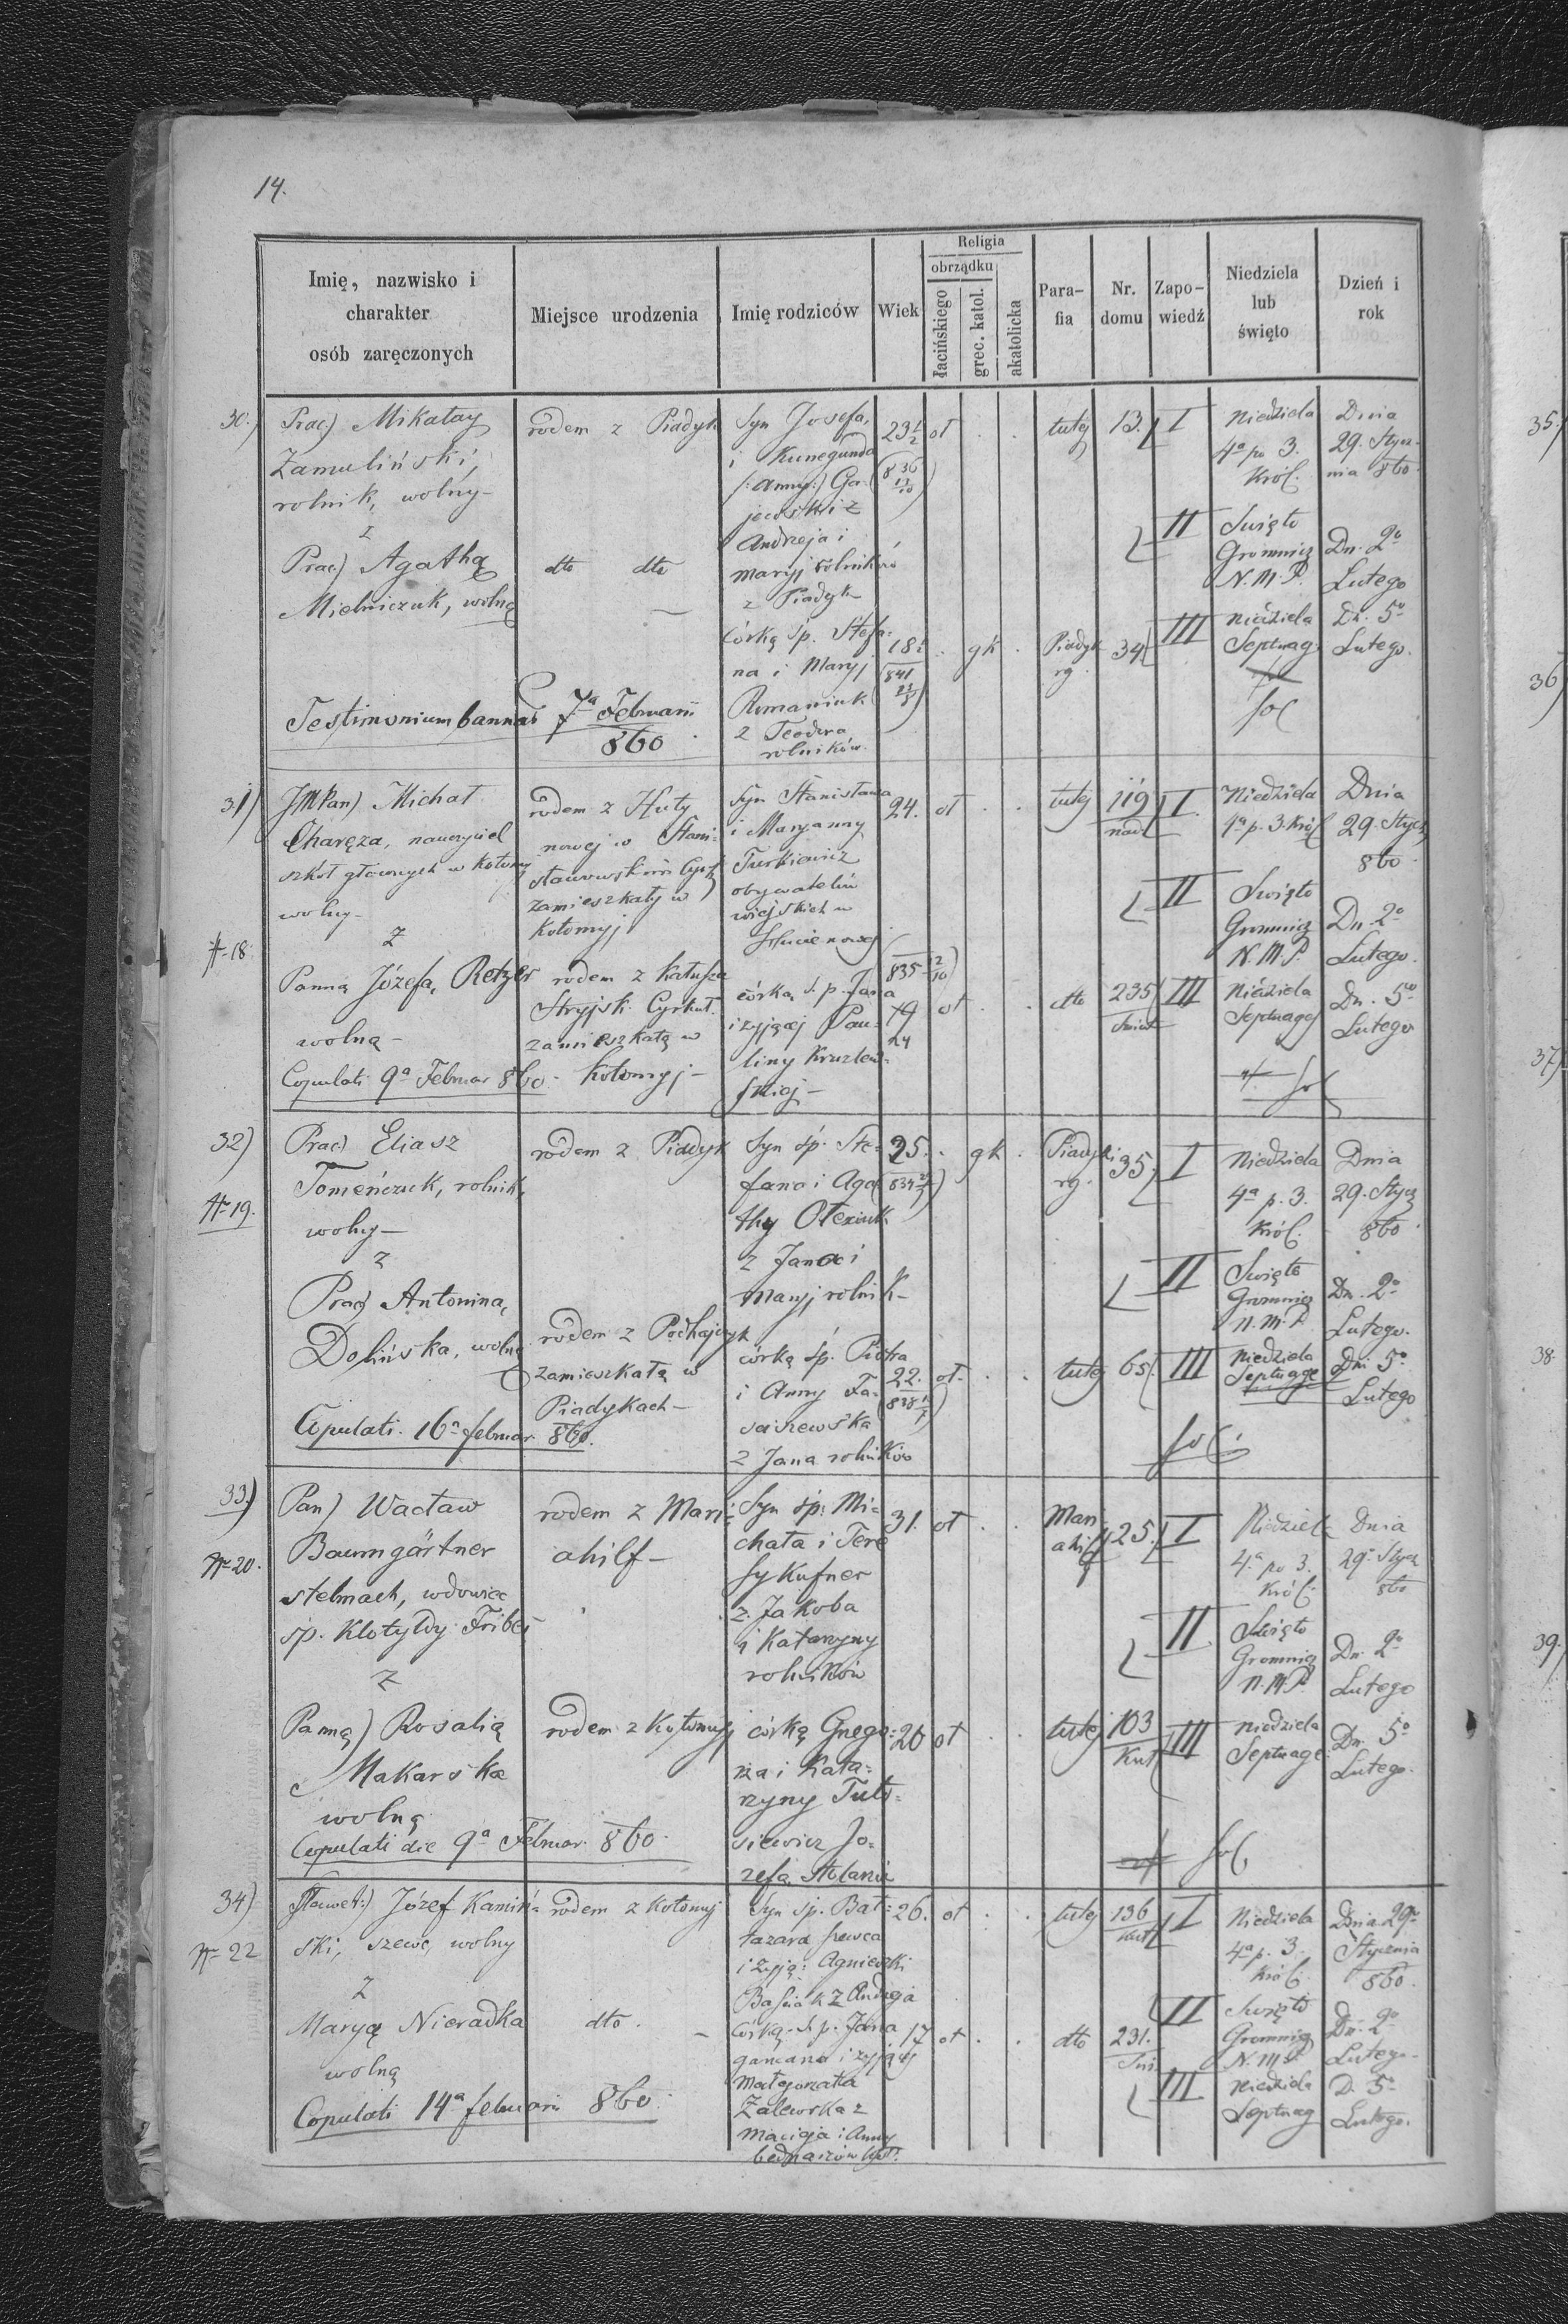 14.
Imię, nazwisko i
charakter
osób zaręczonych
Miejsce urodzenia
Imię rodziców
Wiek
Religia
obrządku
łacińskiego
grec. katol.
akatolicka
Para-
fia
Nr.
domu
Zapo-
wiedź
Niedziela
lub
święto
Dzień i
rok
30.)
Prac) Mikałay
Zamuliński,
rolnik, wolny-
z
Prac) Agathą
Mielniczuk, wolną
Testimonium bannor
7a Februarii
860
rodem z Piadyk
dto dto
Syn Josefa,
i Kunegunda
/:Anny:/ Ga-
jewski z
Andrzeja i
maryj rolników
z Piadyk
córką śp. Stefa-
na i Maryj
Romaniuk
z Teodora
rolników.
23 1/2
836
18
841
oł
gk
tutej
Piadyk
rg
13.
34
I
II
III
Niedziela
4a po 3.
Król.
Święto
Gromnicz
N. M. P.
niedziela
Septuag
Dnia
29. Stycz-
nia 860.
Dn. 2o
Lutego
Dn. 5o
Lutego.
31)
N 18
JMPan) Michał
Charęza, nauczyciel
szkół głównych w Kołomyj
wolny-
z
Panną Józefa, Retzer
wolną-
Copulati 9a Februar 860.
rodem z Huty
nowej w Stani-
sławowskim Cyrk
zamieszkały w
Kołomyj
rodem z Kałusza
Stryjsk. Cyrkuł.
zamieszkałą w
Kołomyj-
Syn Stanisława
i Maryanny
Turkiewicz
obywatelów
wiejskich w
Hucie nowej
córką ś. p. Jana
i żyjącej Pau-
liny
skiej-
24.
835
19
24
oł
oł
tutej
dto
119
nad
235
I.
II
III
Niedziela
4a p. 3. Król
Święto
Gromnicz
N. M. P.
Niedziela
Septuag
Dnia
29. Stycz
860
Dn. 2o
Lutego.
Dn. 5o
Lutego
32)
N 19.
Prac) Eliasz
Tomeńczuk, rolnik,
wolny-
z
Prac) Antonina,
Dolińska, wolną
Copulati. 16a februar. 860.
rodem z Piadyk
rodem z Podhajczyk
zamieszkałą w
Piadykach-
Syn śp. Ste-
fana i Aga-
thy Olexiuk
z Jana i
maryj rolnik-
córką śp. Piotra
i Anny
z Jana rolników
25.
834
22.
838
gk
oł.
Piadyki
rg.
tutej
35.
65.
I
II
III
Niedziela
4a p. 3.
Król.
Święto
Gromnicz
N. M. P.
niedziela
Septuage
Dnia
29. Stycz
860
Dn. 2o
Lutego.
Dni 5o
Lutego
33.)
N 20.
Pan) Wacław
Baumgärtner
stelmach, wdowiec
śp. Klotyldy
z
Panną) Rosalią
Makarska
wolną
Copulati die 9a Februar. 860.
rodem z Mari-
ahilf-
rodem z Kołomyj
Syn śp. Mi-
chała i Tere
sy Kufner
z Jakoba
i Katarzyny
rolników
córką Grego-
rza i Kata-
rzyny
siewicz Jo-
zefa Stolarza
31.
20
oł
oł
Mari
ahilf
tutej
25.
103
Kut
I
II.
III
Niedziela
4.a po 3.
Król.
Święto
Gromnicz
N. M. P.
niedziela
Septuage.
Dnia
29. Stycz
860
Dn. 2o
Lutego
Dn. 5o
Lutego.
34)
N 22
Sławet:) Józef Kamiń-
ski, szewc, wolny
z
Maryą Nieradka
wolną
Copulati 14a februarii 860.
rodem z Kołomyj
dto.
Syn śp. Bał-
tazara szewca
i żyją: Agnieszki
z Andrzeja
córką ś. p. Jana
gańcarza i żyjącej
Małgorzata
Zalewska z
Macieja i Anny
bednarzów
26.
17
oł
oł
tutej
dto
136
Kut
231.
I
II
III
Niedziela
4a p. 3.
Król.
Święto
Gromnicz
N. M. P.
niedziela
Septuag
Dnia 29o
Stycznia
860.
Dn. 2o
Lutego-
D. 5o
Lutego.
35.)
36)
37)
38.
39.